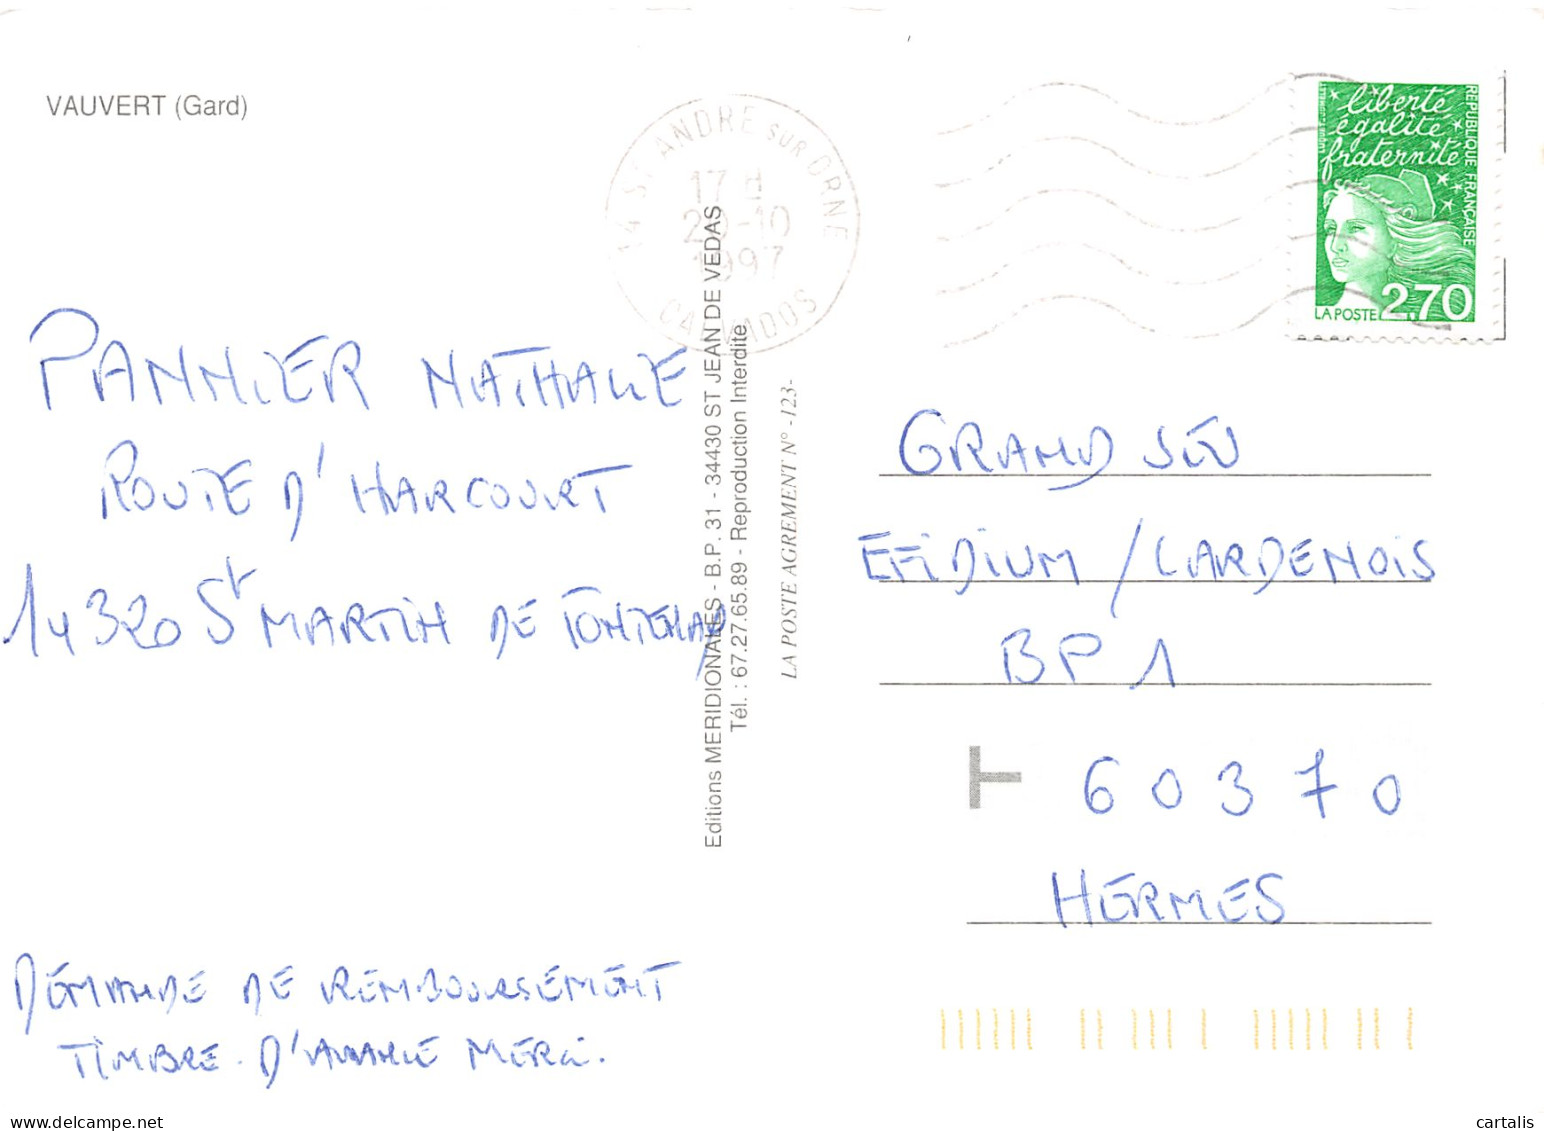 VAUVERT (Gard)
14 ST ANDRE SUR ORNE
17 H
20-10
1997
CALVADOS
liberté
égalité
fraternité
REPUBLIQUE FRANÇAISE
LA POSTE 2,70
PANNIER NATHALIE
ROUTE D'HARCOURT
14320 St MARTIN DE FONTENAY
Editions MERIDIONALES - B.P. 31 - 34430 ST JEAN DE VEDAS
Tél. : 67.27.65.89 - Reproduction Interdite
LA POSTE AGREMENT N° -123-
GRAND JEU
EFIDIUM / CARDENOIS
BP 1
T 60370
HERMES
DEMANDE DE REMBOURSEMENT
TIMBRE. D'AVANCE MERCI.
delcampe.net
cartalis